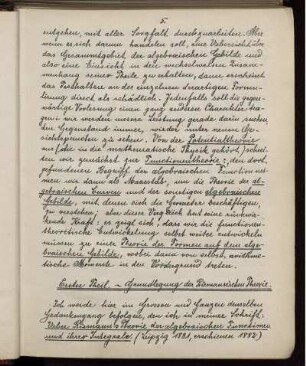 5.
entgehen, mit aller Sorgfalt durchzuarbeiten. Aber
wenn es sich darum handeln soll, eine Uebersicht über
das Gesammtgebiet der algebraischen Gebilde und
also eine Einsicht in den wechselweisen Zusam-
menhang seiner Theile zu erhalten, dann erscheint
das Festhalten an der einzelnen derartigen Formu-
lirung durchaus schädlich. Jedenfalls soll die gegen-
wärtige Vorlesung einen ganz anderen Charakter tra-
gen: wir werden unsere Leistung gerade darin suchen,
den Gegenstand immer wieder unter neuen Ge-
sichtspunkten zu sehen. Von der Potentialtheorie
aus, die in die mathematische Physik gehört, wenden
wir uns zunächst zur Functionentheorie; den dort
gefundenen Begriff der algebraischen Function neh-
men wir dann als Maasstab, um die Theorie der al-
gebraischen Curven und der sonstigen algebraischen
Gebilde, mit denen sich die Geometer beschäftigen,
zu verstehen; aber dieser Vergleich hat seine rückwir-
kende Kraft: es zeigt sich, dass wir die functionen-
theoretische Entwickelung selbst weiter entwickeln
müssen zu einer Theorie der Formen auf dem alge-
braischen Gebilde, wobei dann von selbst arithme-
tische Momente in den Vordergrund treten.
Erster Theil. – Grundlegung der Riemann'schen Theorie.
Ich werde hier im Grossen und Ganzen denselben
Gedankengang befolgen, den ich in meiner Schrift:
Ueber Riemann's Theorie der algebraischen Functionen
und ihrer Integrale (Leipzig 1881, erschienen 1882)